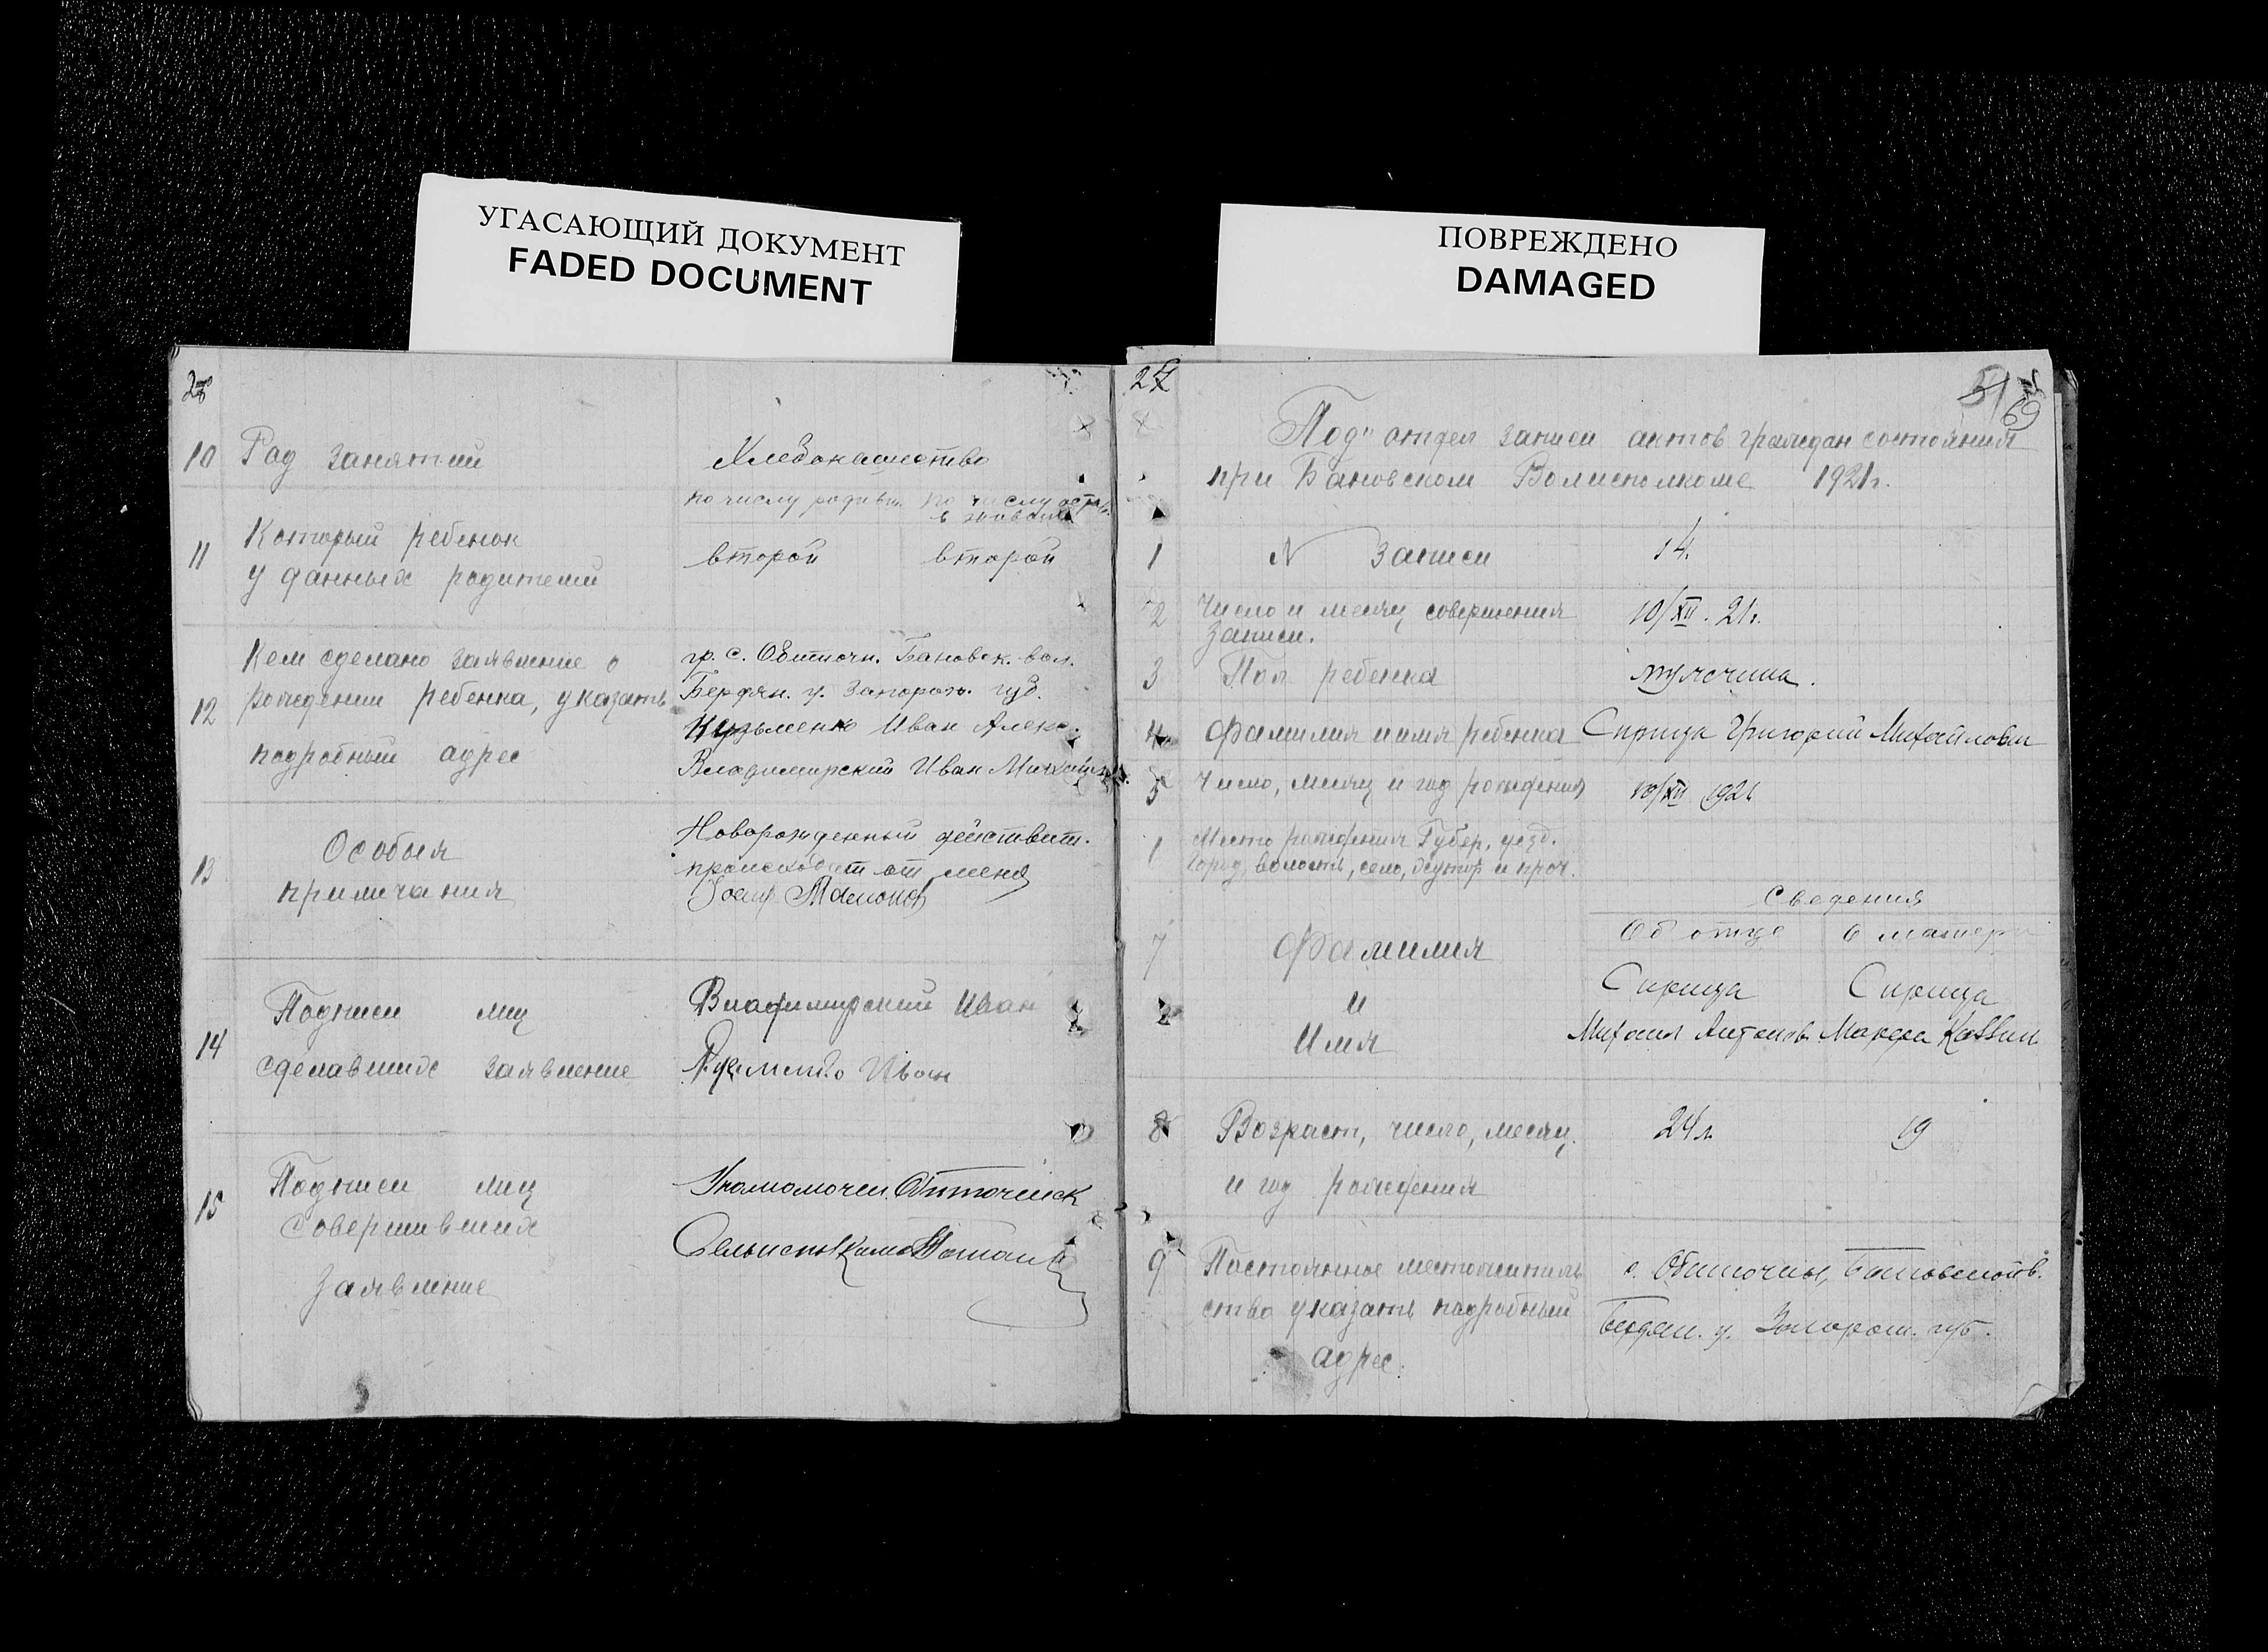 УГАСАЮЩИЙ ДОКУМЕНТ
FADED DOCUMENT
10 Род занятий Хлебопашество
по числу родивш. по числу остав.
в живых
11 Который ребенок
у данных родителей
второй второй
12 Кем сделано заявление о
рождении ребенка, указать
подробный адрес
гр. с. Обиточн. Бановск. вол.
Бердян. у. Запорож. губ.
Кузьменко Иван Алекс.
Владимирский Иван
13 Особыя
примичания
Новорожденный действит.
происходит от меня
14 Подписи лиц
сделавших заявление
Владимирский Иван
Иван
15 Подписи лиц
совершивших
Заявление
Уполномочен. Обиточенск
ПОВРЕЖДЕНО
DAMAGED
27
51
69
Под" отдел записи актов граждан состояния
при Бановском Волисполкоме 1921г.
1 N Записи 14.
2 Число и месяц совершения
Записи.
10/XII. 21г.
3 Пол ребенка мужчина.
4 Фамилия и имя ребенка Сирица Григорий Михайлович
5 Число, месяц и год рождения 10/XII 1921
1 Место рождения Губер, уезд.
город, волость, село, хутор и проч.
Сведения
Об отце О матери
7 Фамилия
и
Имя
Сирица Сирица
Михаил Антонов.
8 Возраст, число, месяц,
и год рождения
24л. 19
9 Постоянное местожитель
ство указать подробный
адрес.
с. Обиточное, Бановской в.
Бердян. у. Запорож. губ.